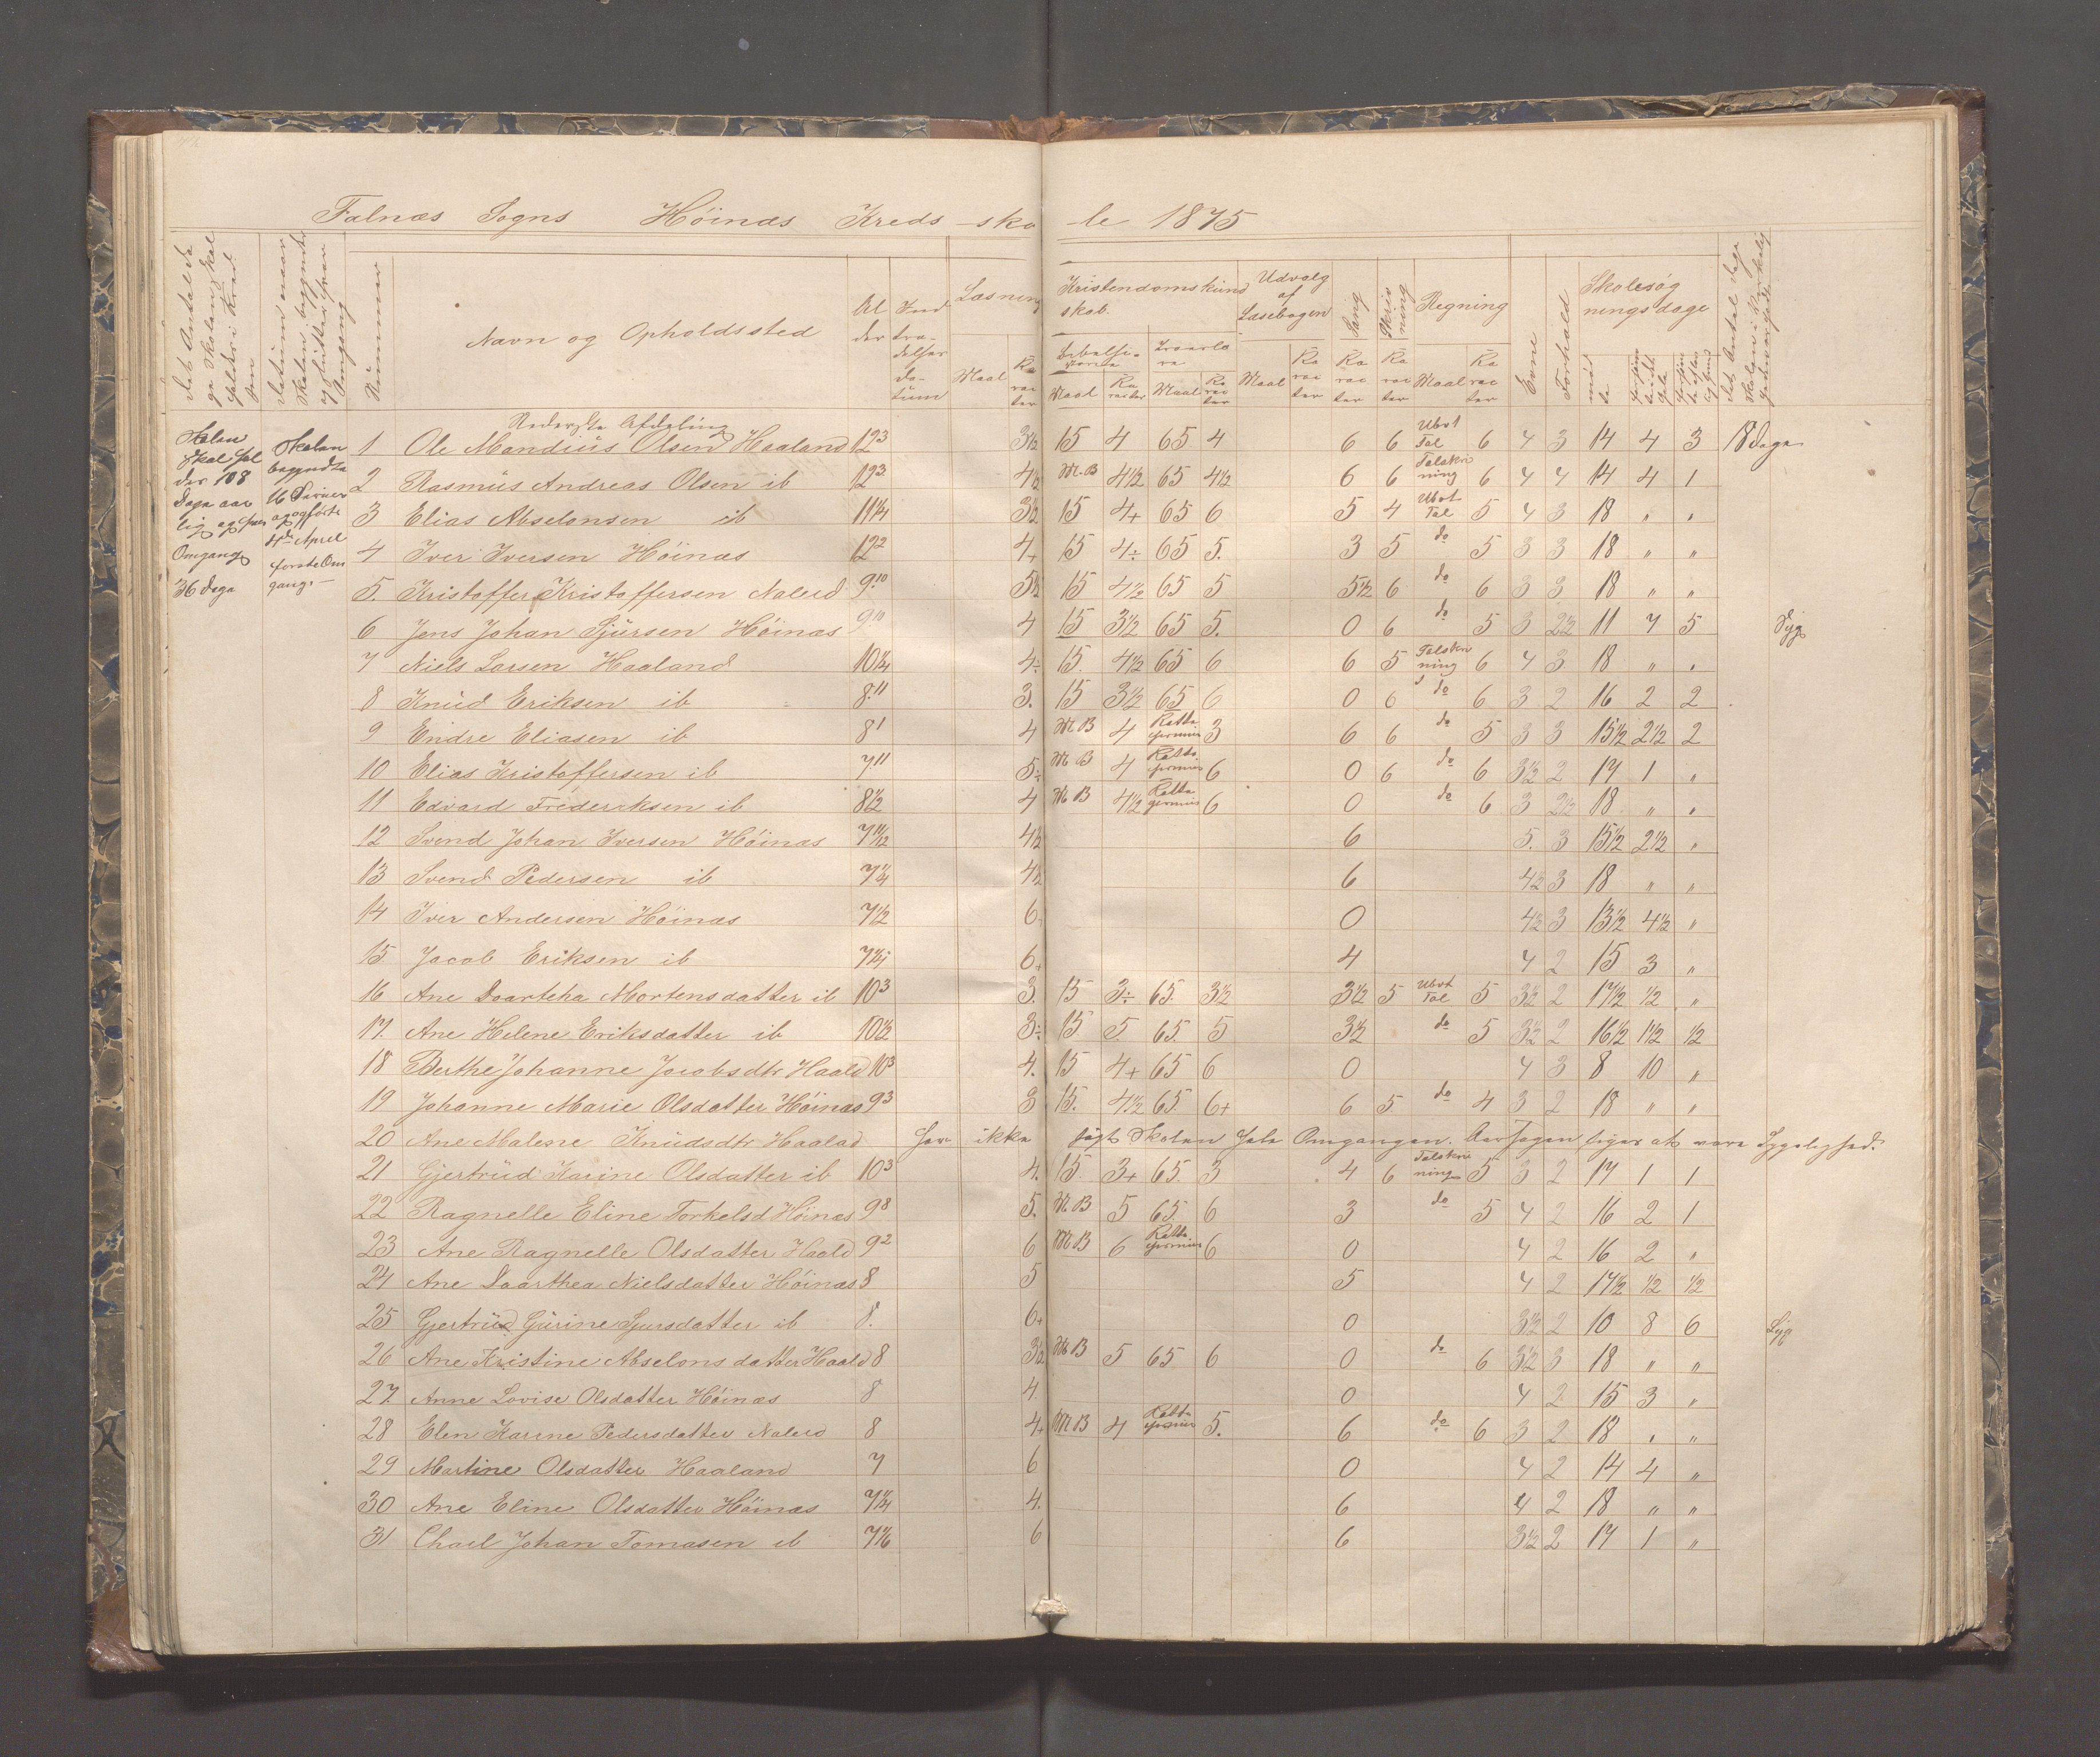 Falnæs Sogns Höinæs Kreds -sko -le 1875
Det Antal Da
ge Skolen skal
holdes i Kred
sen
Datum naar
Skolen begyndte
og sluttes hver
Omgang
Nummer
Navn og Opholdssted
Al
der
Ind
træ-
delses
da-
tum
Læsning
Maal
Ka
rac
ter
Kristendomskund
skab.
Bibelhi-
storie
Troeslæ
re
Maal
Ka
racter
Maal
Ka
rac
ter
Udvalg
af
Læsebogen
Maal
Ka
rac
ter
Sang
Ka
rac
ter
Skriv
ning
Ka
rac
ter
Regning
Maal
Ka
rac
ter
Evne
Forhold
Skolesøg
ningsdage
mød
te
forsøm
te i det
hele
forsøm
te uden
lov. grund
Det Antal Dage
Skolen i Virkelig
heden er holdt
Skolen
skal hol
des 108
Dage aar
lig og hver
Omgang
36 Dage
Skolen
begyndte
16 Januar
og ophørte
4de April
første Om
gang. —
Nederste Afdeling
1 Ole Mandius Olsen Haaland 12 3 3½ 15 4 65 4 6 6 Ubst Tal 6 4 3 14 4 3 18 dage
2 Rasmus Andreas Olsen ib 12 3 4½ M.B 4½ 65 4½ 6 6 Talskri ning 6 4 4 14 4 1
3 Elias Abselonsen ib 11¼ 3½ 15 4+ 65 6 5 4 Ubst Tal 5 4 3 18 " "
4 Iver Iversen Höinæs 12 2 4+ 15 4÷ 65 5. 3 5 do 5 3 3 18 " "
5. Kristoffer Kristoffersen Nalerd 9.10 5½ 15 4½ 65 5 5½ 6 do 6 3 3 18 " "
6 Jens Johan Sjursen Höinæs 9 10 4 15 3½ 65 5. 0 6 do 5 3 2½ 11 7 5 Syg
7 Niels Larsen Haaland 10¼ 4÷ 15. 4½ 65 6 6 5 Talskri ning 6 4 3 18 " "
8 Knud Eriksen ib 8.11 3. 15 3½ 65 6 0 6 do 6 3 2 16 2 2
9 Endre Eliasen ib 8 1 4 M B 4 Rette 3 6 6 do 5 3 3 15½ 2½ 2
10 Elias Kristoffersen ib 7.11 5÷ M B 4 Rette 6 0 6 do 6 3½ 2 17 1 "
11 Edvard Frederiksen ib 8½ 4 M B 4½ Rette 6 0 do 6 3 2½ 18 " "
12 Svend Johan Iversen Höinæs 7 11/12 4½ 6 5. 3 15½ 2½ "
13 Svend Pedersen ib 7¼ 4½ 6 4½ 3 18 " "
14 Iver Andersen Höinæs 7½ 6. 0 4½ 3 13½ 4½ "
15. Jacob Eriksen ib 7¼ 6+ 4 4 2 15 3 "
16 Ane Daarteha Mortensdatter ib 10 3 3. 15 3÷ 65. 3½ 3½ 5 Ubst Tal 5 3½ 2 17½ ½ "
17. Ane Helene Eriksdatter ib 10½ 3÷ 15 5. 65. 5 3½ do 5 3½ 2 16½ 1½ ½
18 Berthe Johanne Jacobsdtr Haald 10 3 4. 15 4+ 65 6 0 4 3 8 10 "
19 Johanne Marie Olsdatter Höinæs 9 3 3 15. 4½ 65. 6+ 6 5. do 4 3 2 18 " "
20 Ane Malene Knudsdtr Haalad Har ikke søgt Skolen hele Omgangen. Aarsagen siges at være Sygelighed.
21 Gjertrud Karine Olsdatter ib 10 3 4. 15. 3+ 65. 3 4 6 Talskri ning 5 3 2 17 1 1
22 Ragnelle Eline Torkelsd Höinæs 9 8 5. M B 5 65. 6 3 do 5 4 2 16 2 1
23 Ane Ragnelle Olsdatter Haald 9 2 6 M B 6 Rette 6 0 4 2 16 2 "
24 Ane Daarthea Nielsdatter Höinæs 8 5 5 4 2 17½ ½ ½
25 Gjertrud Gurine Sjursdatter ib 8. 6+ 0 3½ 2 10 8 6 Syg
26 Ane Kristine Abselonsdatter Haald 8 3½ M B 5 65 6 0 do 6 3½ 3 18 " "
27. Anne Lovise Olsdatter Höinæs 8 4. 0 4 2 15 3 "
28 Elen Karine Pedersdatter Nalerd 8 4+ M B 4 Rette 5. 6 do 6 3 2 18 " "
29 Martine Olsdatter Haaland 7 6 0 4 2 14 4 "
30 Ane Eline Olsdatter Höinæs 7¼ 4. 6 4 2 18 " "
31 Charl Johan Tomasen ib 7⅙ 6 6 3½ 2 17 1 "